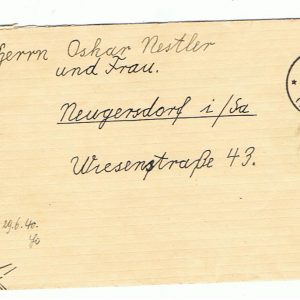 Herrn Oskar Nestler
und Frau.
Neugersdorf i/Sa
Wiesenstraße 43.
29.6.40.